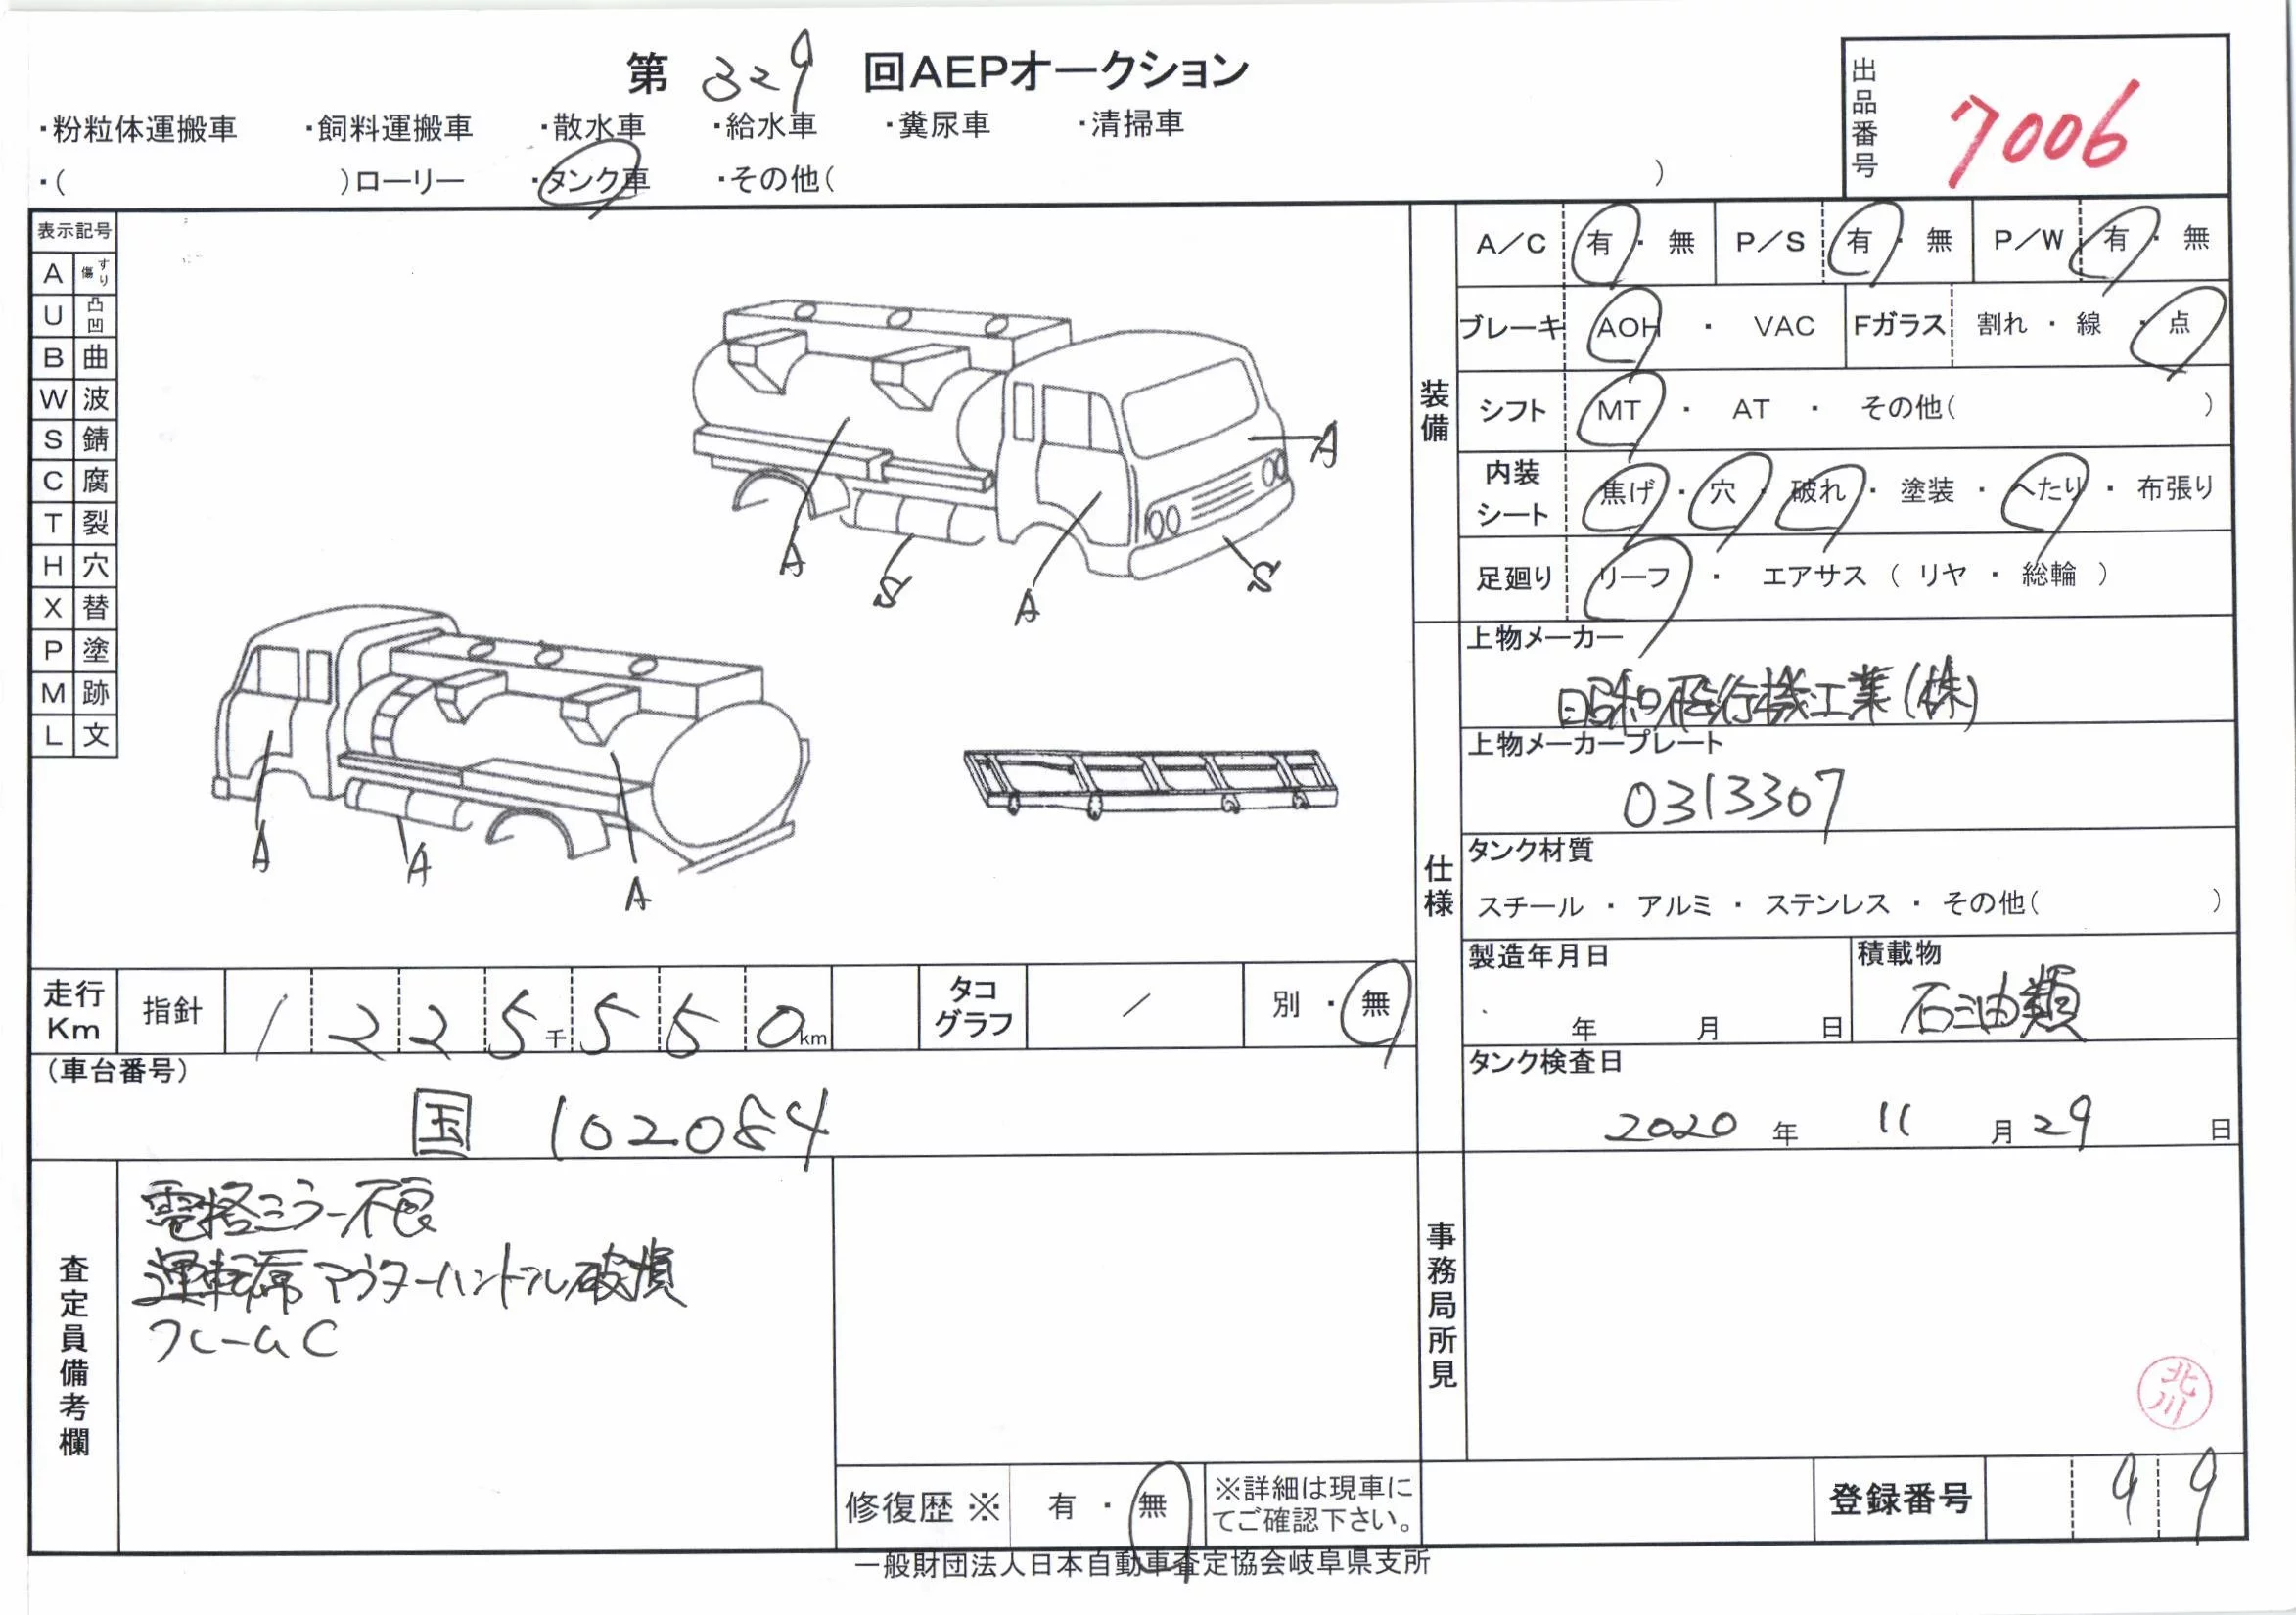 第 329 回AEPオークション
出品番号 7006
・粉粒体運搬車 ・飼料運搬車 ・散水車 ・給水車 ・糞尿車 ・清掃車
・( )ローリー ・タンク車 ・その他( )
表示記号
A すり傷
U 凸凹
B 曲
W 波
S 錆
C 腐
T 裂
H 穴
X 替
P 塗
M 跡
L 文
A
A
S
A
S
A
A
A
装備
A/C 有・無 P/S 有・無 P/W 有・無
ブレーキ AOH ・ VAC Fガラス 割れ・線・点
シフト MT ・ AT ・ その他( )
内装シート 焦げ・穴・破れ・塗装・へたり・布張り
足廻り リーフ ・ エアサス ( リヤ ・ 総輪 )
仕様
上物メーカー
昭和飛行機工業(株)
上物メーカープレート
0313307
タンク材質
スチール ・ アルミ ・ ステンレス ・ その他( )
製造年月日
年 月 日
積載物
石油類
タンク検査日
2020 年 11 月 29 日
走行Km 指針 1 2 2 5 千 5 5 0 km タコグラフ / 別・無
(車台番号)
国 102084
査定員備考欄
電格ミラー不良
運転席アウターハンドル破損
フレームC
事務局所見
北川
修復歴 ※ 有・無 ※詳細は現車にてご確認下さい。
登録番号 99
一般財団法人日本自動車査定協会岐阜県支所